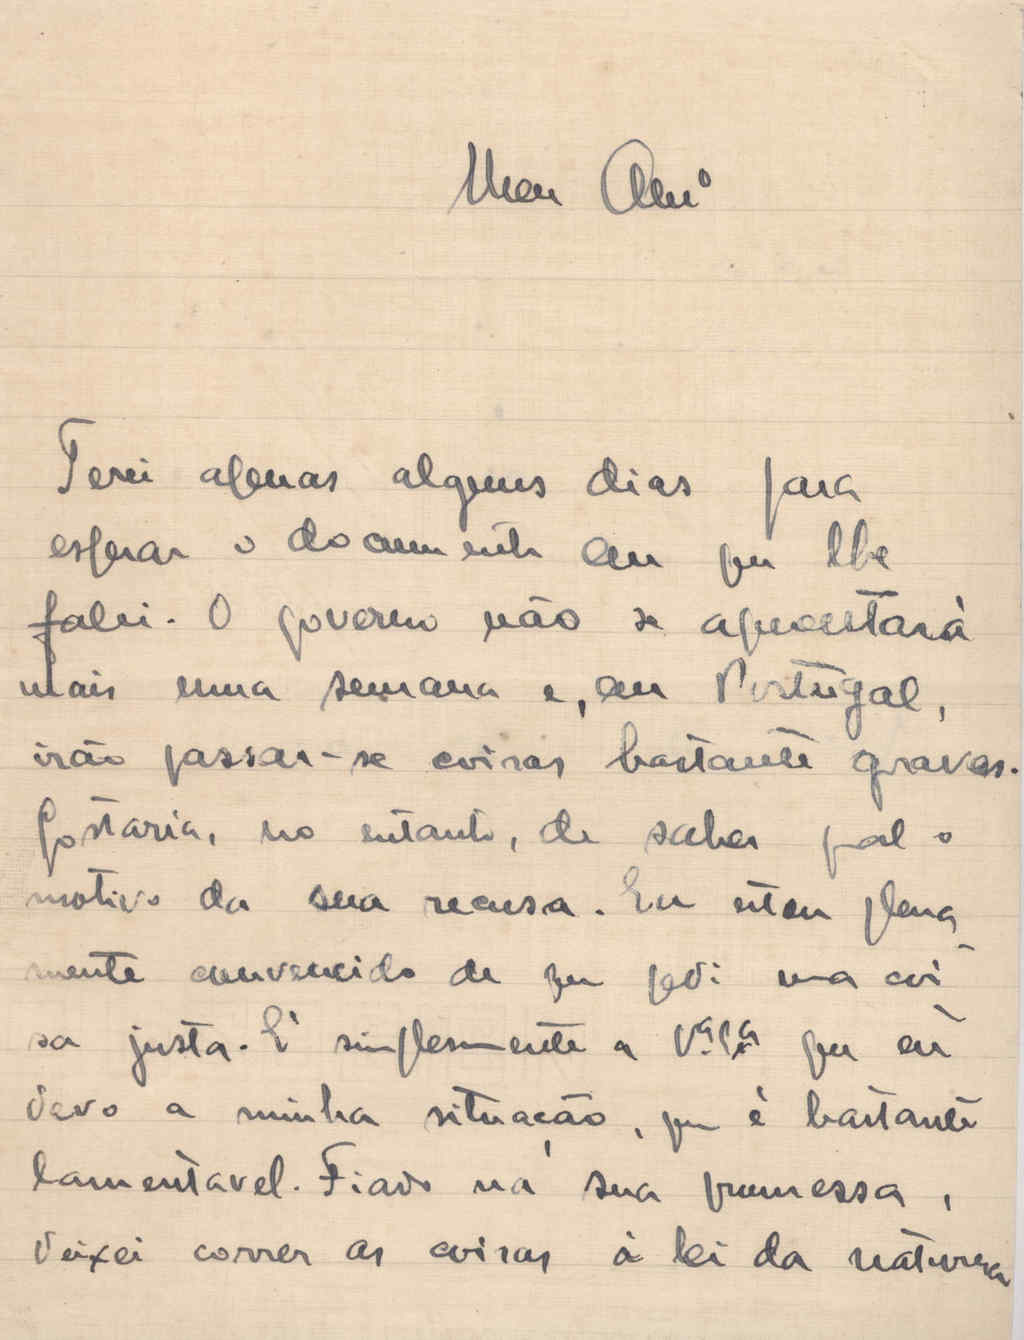 Meu Amº
Terei apenas alguns dias para
esperar o documento em que lhe
falei. O governo não se aguentará
mais uma semana e, em Portugal,
irão passar-se coisas bastante graves.
Gostaria, no entanto, de saber qual o
motivo da sua recusa. Eu estou plena
mente convencido de que pedi uma coi-
sa justa. E' simplesmente a V.ª Ex.ª que eu
devo a minha situação, que é bastante
lamentavel. Fiado na sua promessa,
deixei correr as coisas á lei da natureza